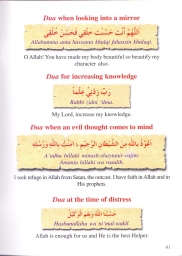 Dua when looking into a mirror
اَللّٰهُمَّ أَنْتَ حَسَّنْتَ خَلْقِي فَحَسِّنْ خُلُقِي
Allahumma anta hassanta khalqi fahassin khuluqi.
O Allah! You have made my body beautiful so beautify my
character also.
Dua for increasing knowledge
رَبِّ زِدْنِي عِلْمًا
Rabbi zidni 'ilma.
My Lord, increase my knowledge.
Dua when an evil thought comes to mind
اَعُوْذُ بِاللّٰهِ مِنَ الشَّيْطَانِ الرَّجِيْمِ ، اٰمَنْتُ بِاللّٰهِ وَرُسُلِهٖ
A'udhu billahi minash-shaytaanir-rajim.
Amantu billahi wa rusulih.
I seek refuge in Allah from Satan, the outcast. I have faith in Allah and in
His prophets.
Dua at the time of distress
حَسْبُنَا اللّٰهُ وَنِعْمَ الْوَكِيْلُ
Hasbunallahu wa ni'mal-wakil.
Allah is enough for us and He is the best Helper.